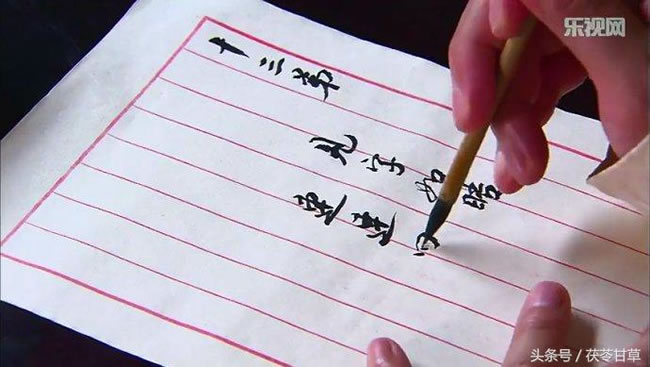 乐视网
十三弟
见字如晤
头条号 / 茯苓甘草